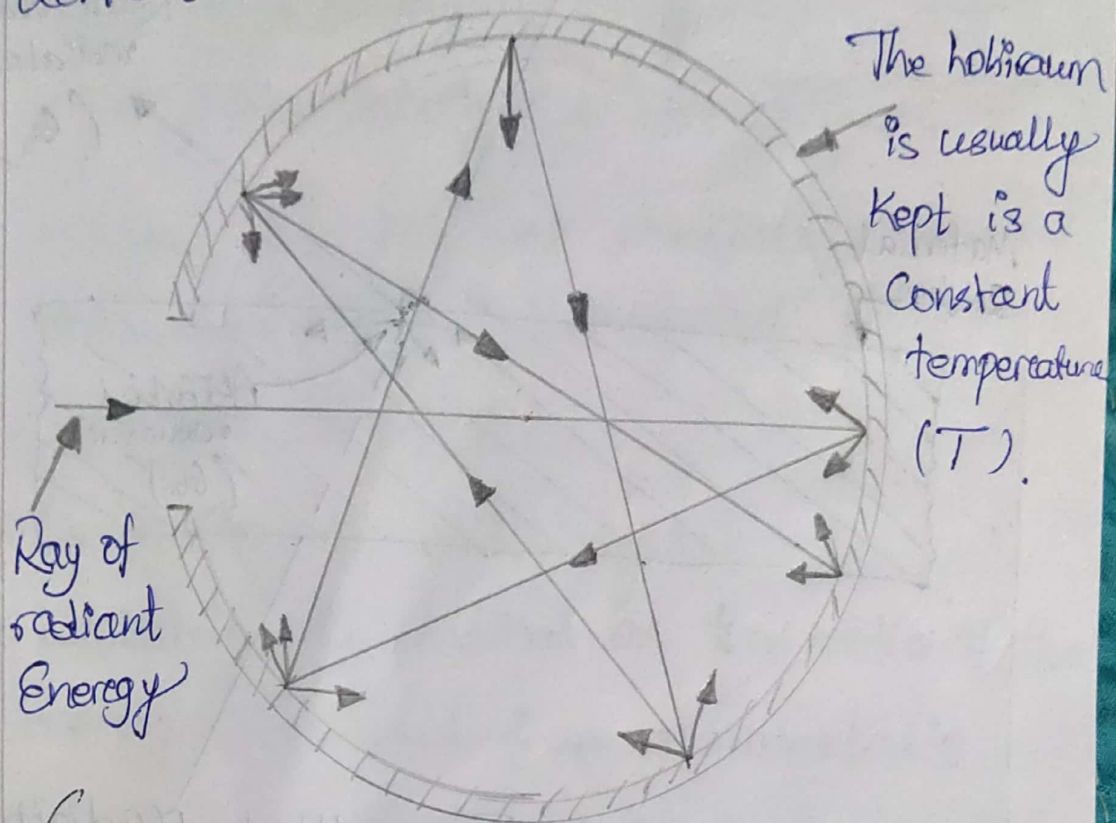 The hohiraum
is usually
Kept is a
Constant
temperature
(T).
Ray of
radiant
Eneregy